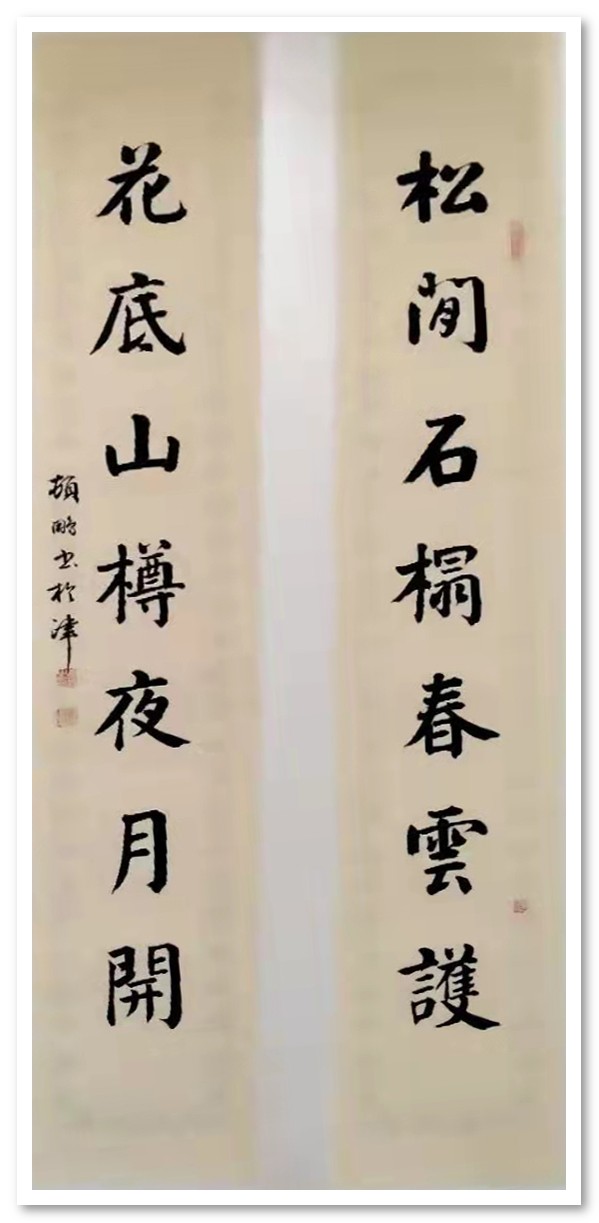 松間石榻春雲護
花底山樽夜月開
頓鵬書於津